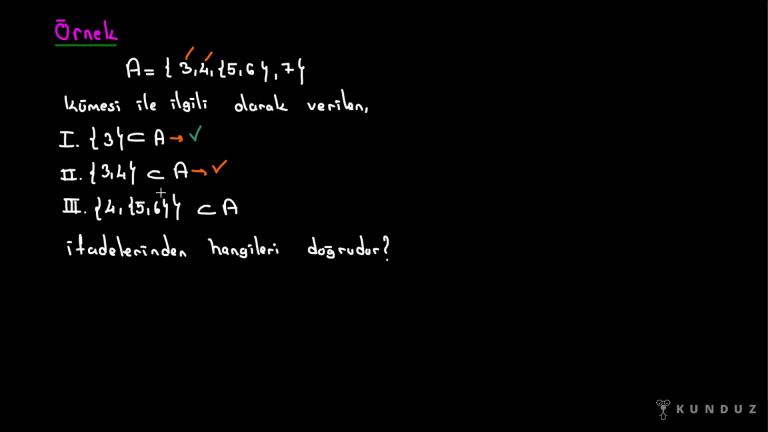 Örnek
A = { 3, 4, {5, 6}, 7}
kümesi ile ilgili olarak verilen,
I. {3} ⊂ A → ✓
II. {3,4} ⊂ A → ✓
III. {4, {5,6}} ⊂ A
ifadelerinden hangileri doğrudur?
KUNDUZ